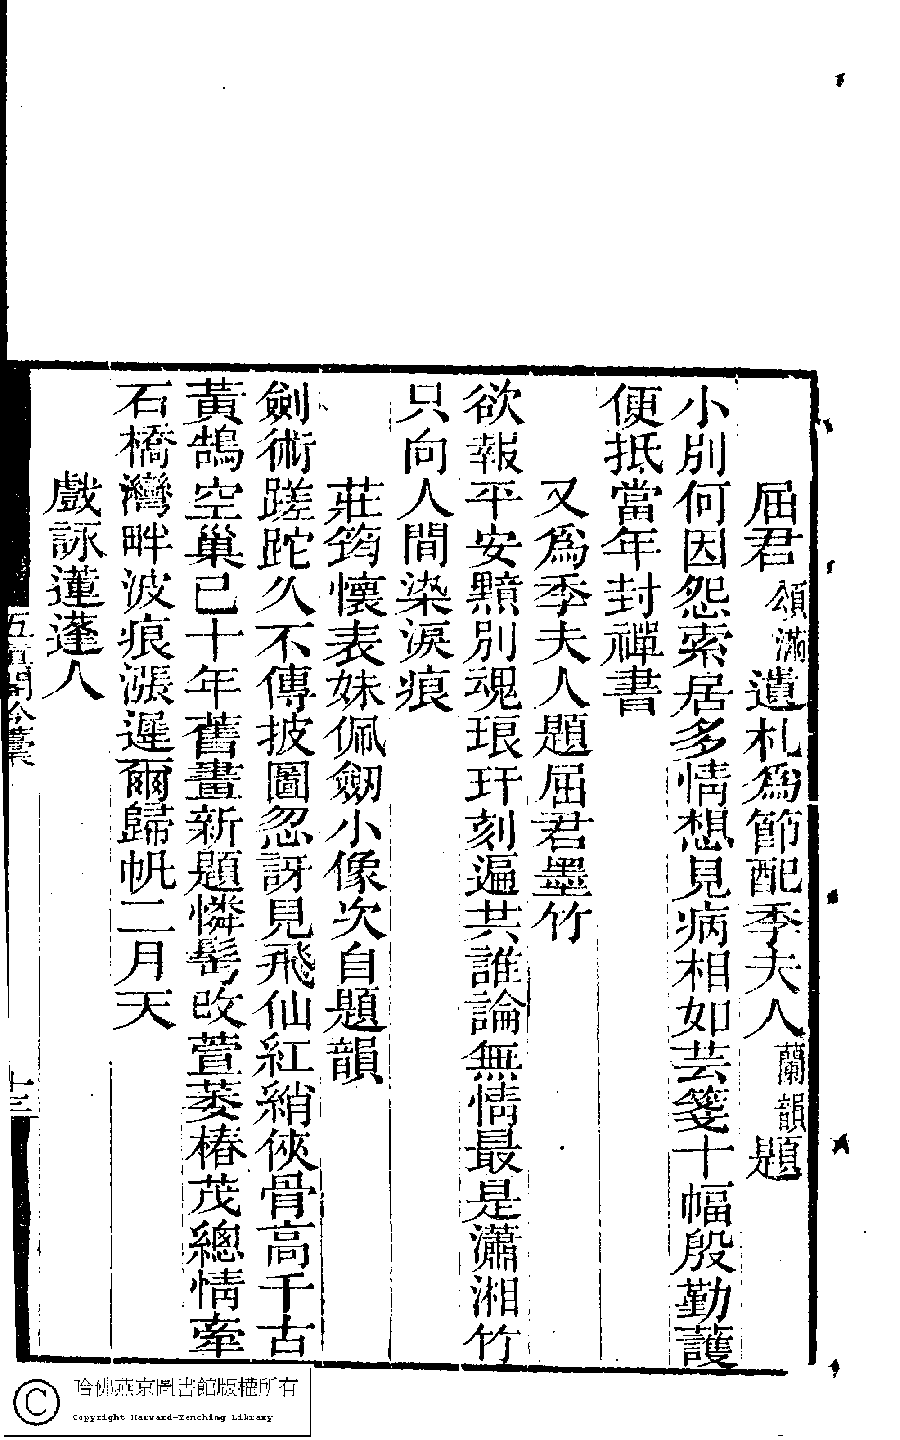 屈君頌滿遺札爲節配季夫人蘭韻題
小別何因怨索居多情想見病相如芸箋十幅殷勤護
便抵當年封禪書
又爲季夫人題屈君墨竹
欲報平安黯別魂琅玕刻遍共誰論無情最是瀟湘竹
只向人間染淚痕
莊筠懷表妹佩劒小像次自題韻
劍術蹉跎久不傳披圖忽訝見飛仙紅綃俠骨高千古
黃鵠空巢已十年舊畫新題憐髩改萱萎椿茂總情牽
石橋灣畔波痕漲遲爾歸帆二月天
戲詠蓮蓬人
十三
哈佛燕京圖書館版權所有
Copyright Harvard-Yenching Library